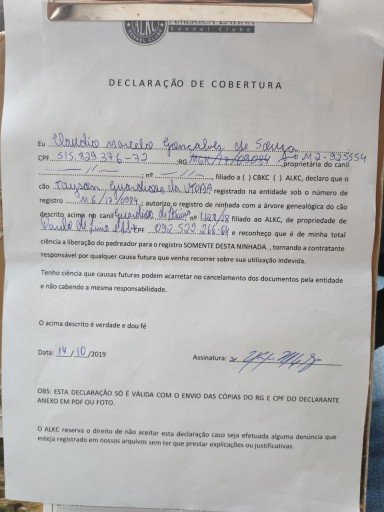 ALKC
KENNEL CLUBE
AMERICA LATINA
Kennel Clube
DECLARAÇÃO DE COBERTURA
Eu Claudio Marcelo Gonçalves de Souza
CPF 515.329.376-72 ;RG M2-923554 ,proprietária do canil
— // — ; nº — // — , filiado a ( ) CBKC ( ) ALKC, declaro que o
cão Tayson Guardiões da registrado na entidade sob o número de
registro M6/17/0984 ; autorizo o registro de ninhada com a árvore genealógica do cão
descrito acima no canil Guardião de , nº 1123/18 filiado ao ALKC, de propriedade de
Paulo de Lima CPF 092.522.266-64 e reconheço que é de minha total
ciência a liberação do padreador para o registro SOMENTE DESTA NINHADA , tornando a contratante
responsável por qualquer causa futura que venha recorrer sobre sua utilização indevida.
Tenho ciência que causas futuras podem acarretar no cancelamento dos documentos pela entidade
e não cabendo a mesma responsabilidade.
O acima descrito é verdade e dou fé
Data: 14 / 10 /2019 Assinatura: x
OBS: ESTA DECLARAÇÃO SÓ É VÁLIDA COM O ENVIO DAS CÓPIAS DO RG E CPF DO DECLARANTE
ANEXO EM PDF OU FOTO.
O ALKC reserva o direito de não aceitar esta declaração caso seja efetuada alguma denúncia que
esteja registrado em nossos arquivos sem ter que prestar explicações ou justificativas.